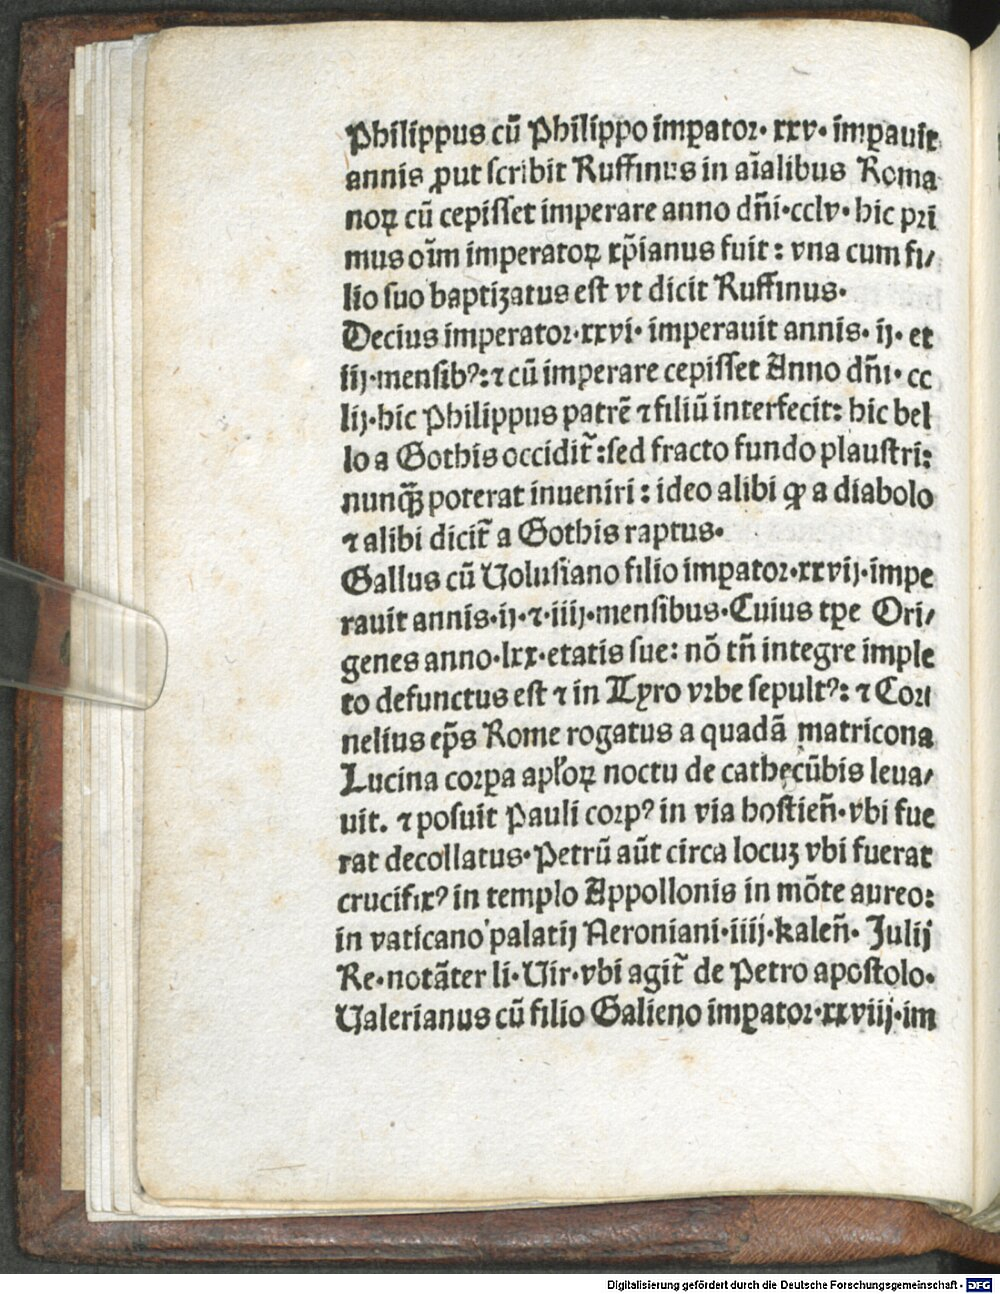 Philippus cū Philippo imꝑator· xxv· imꝑauit
annis ꝓut scribit Ruffinus in aīalibus Roma
noꝝ cū cepisset imperare anno dñi·cclv· hic pri
mus oīm imperatoꝝ xp̄ianus fuit : vna cum fi/
lio suo baptizatus est vt dicit Ruffinus·
Decius imperator·xxvi· imperauit annis· ij· et
iij·mensibꝰ:⁊ cū imperare cepisset Anno dñi· cc
lij·hic Philippus patrē ⁊ filiū interfecit: hic bel
lo a Gothis occidit̄ :sed fracto fundo plaustri:
nunq̄ꝫ poterat inueniri : ideo alibi ꝙ a diabolo
⁊ alibi dicit̄ a Gothis raptus·
Gallus cū Volusiano filio imꝑator·xxvij·impe
rauit annis·ij·⁊·iiij·mensibus·Cuius tꝑe Ori/
genes anno·lxx·etatis sue: nō tñ integre imple
to defunctus est ⁊ in Tyro vrbe sepultꝰ: ⁊ Cor
nelius ep̄s Rome rogatus a quadā matricona
Lucina corꝑa apl̄oꝝ noctu de cathecūbis leua/
uit. ⁊ posuit Pauli corpꝰ in via hostieñ·vbi fue
rat decollatus·Petrū aūt circa locuꝫ vbi fuerat
crucifixꝰ in templo Appollonis in mōte aureo:
in vaticano palatij Neroniani·iiij·kaleñ· Julij
Re·notāter li·Vir·vbi agit̄ de Petro apostolo·
Valerianus cū filio Galieno imꝑator·xxviij·im
Digitalisierung gefördert durch die Deutsche Forschungsgemeinschaft - DFG